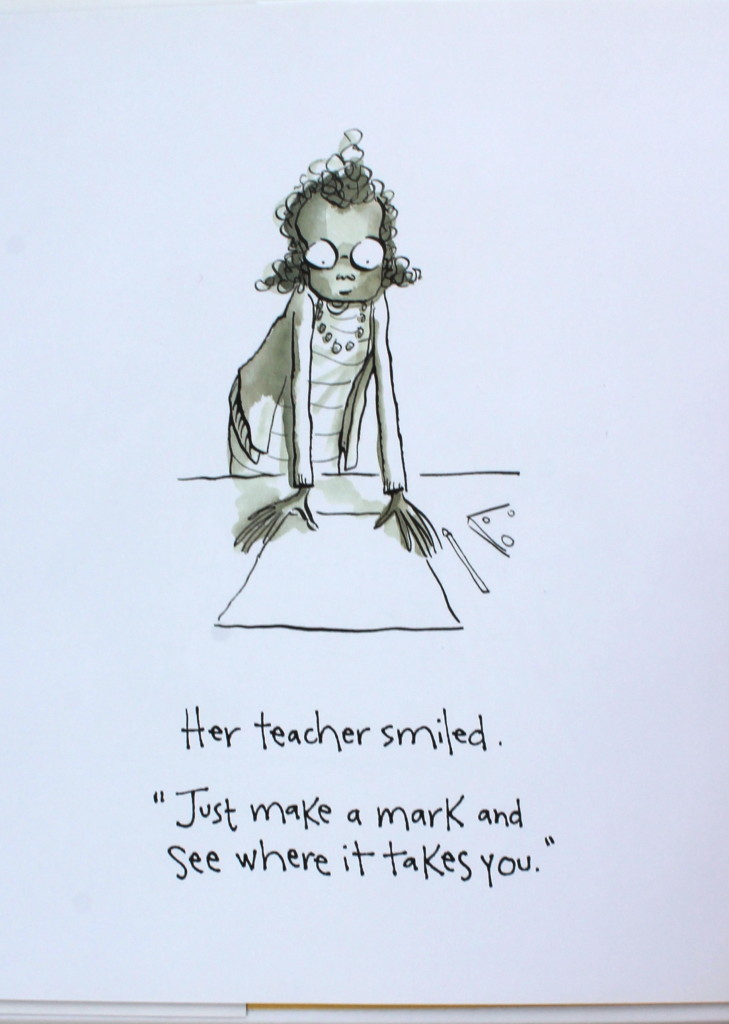 Her teacher smiled.
"Just make a mark and
see where it takes you."